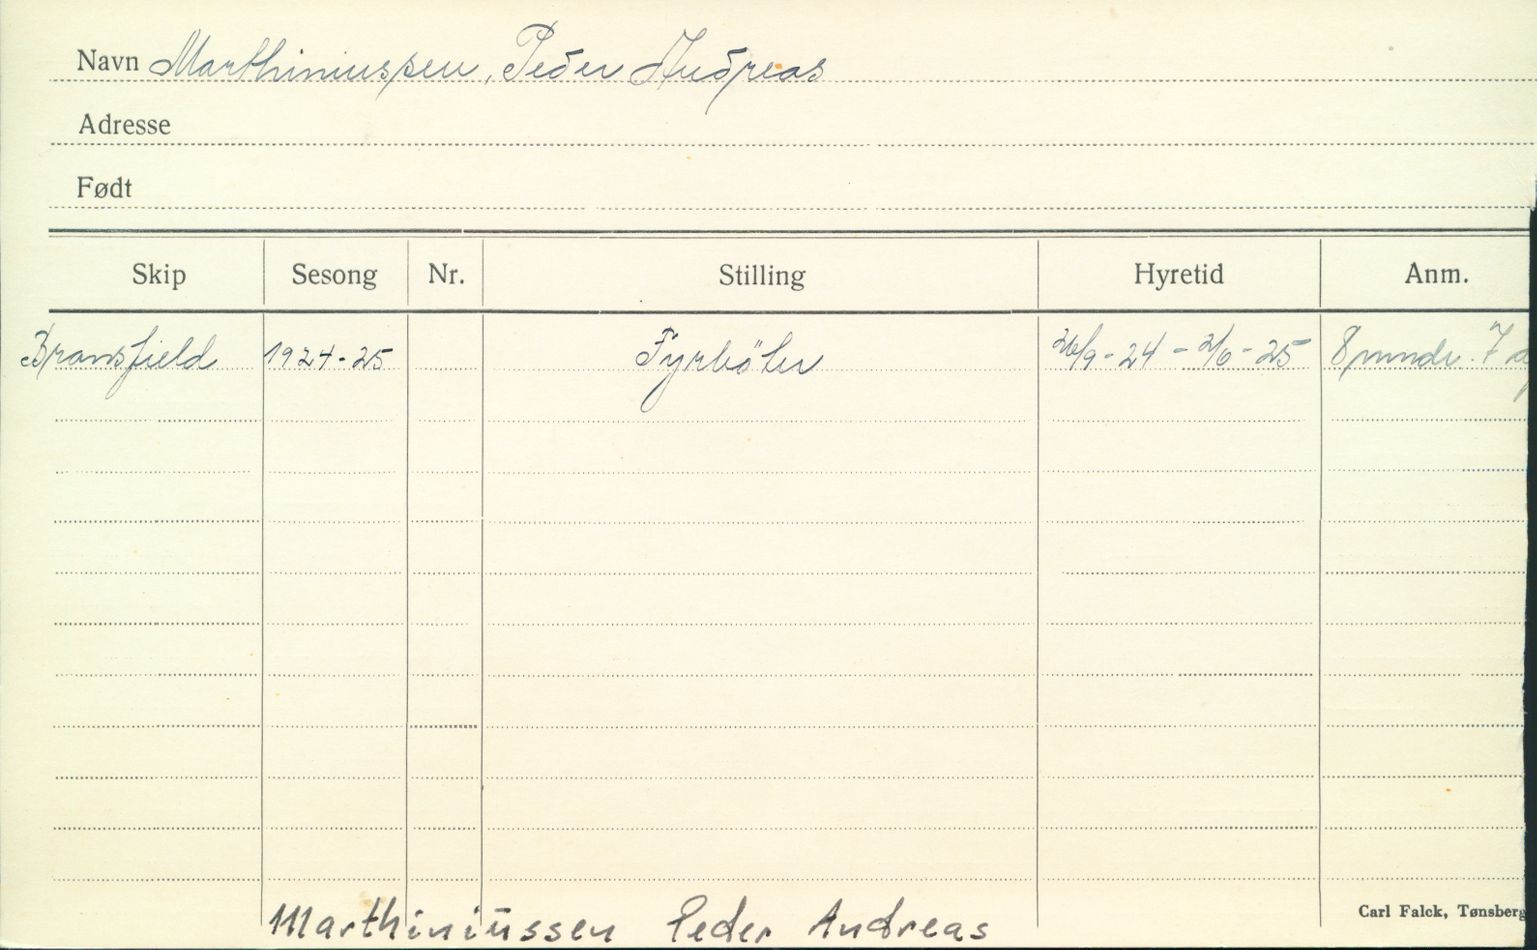 Navn Marthiniussen, Peder Andreas
Adresse
Født
Skip Sesong Nr. Stilling Hyretid Anm.
Bransfield 1924-25 Fyrböter 26/9-24 - 2/6-25 8 mndr. 7 d
Marthiniussen Peder Andreas
Carl Falck, Tønsberg